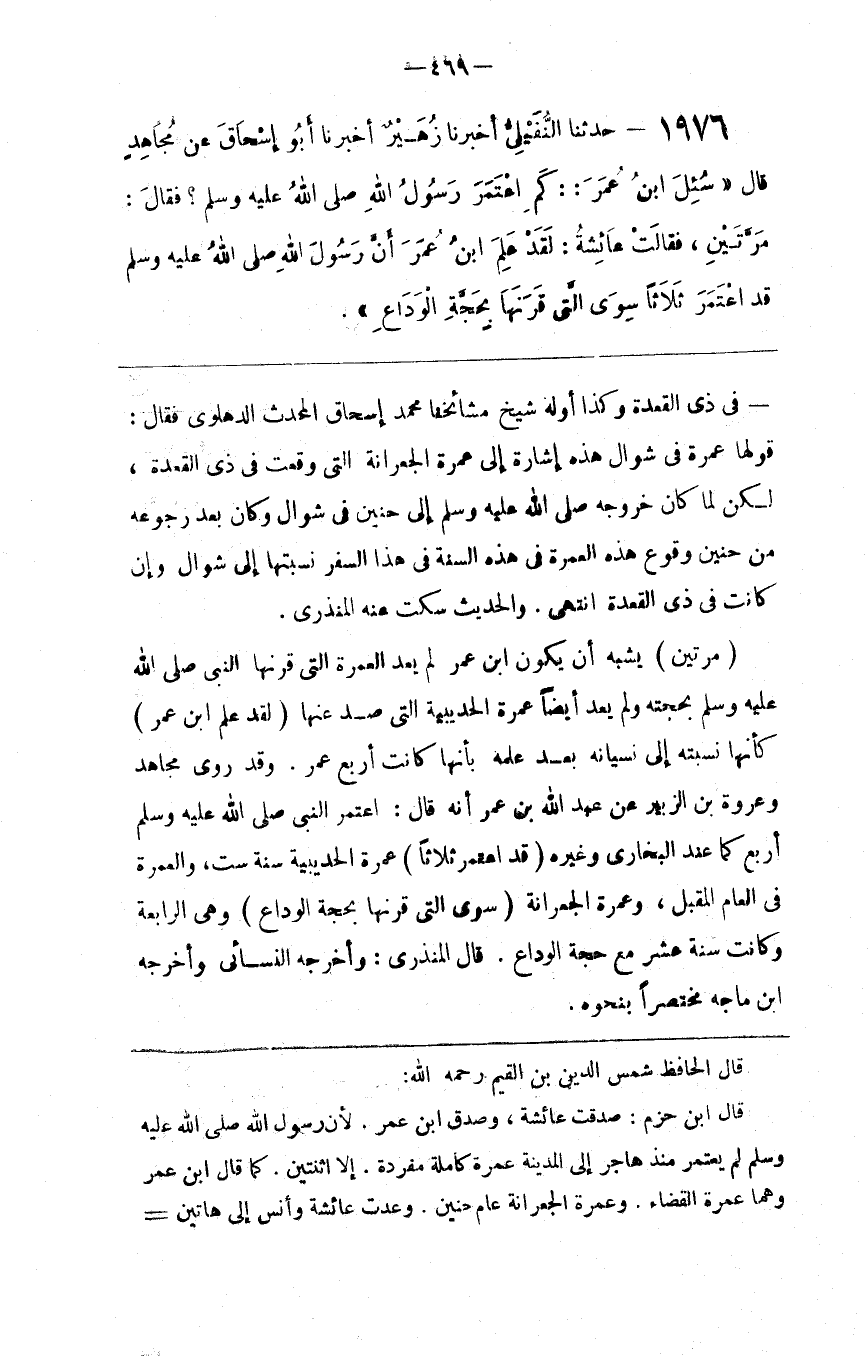 — ٤٦٩ —
١٩٧٦ — حدثنا النُّفَيْلِيُّ أخبرنا زُهَـيْرٌ أخبرنا أَبُو إِسْحَاقَ عن مُجَاهِدٍ
قال « سُئِلَ ابنُ عُمَرَ : : كَمِ اعْتَمَرَ رَسُولُ اللهِ صلى اللهُ عليه وسلم ؟ فقالَ :
مَرَّتَـيْنِ ، فقالَتْ عَائِشَةُ : لَقَدْ عَلِمَ ابنُ عُمَرَ أَنَّ رَسُولَ اللهِ صلى اللهُ عليه وسلم
قد اعْتَمَرَ ثَلَاثًا سِوَى الَّتِى قَرَنَهَا بِحَجَّةِ الْوَدَاعِ » .
— فى ذى القعدة وكذا أوله شيخ مشائخنا محمد إسحاق المحدث الدهلوى فقال :
قولها عمرة فى شوال هذه إشارة إلى عمرة الجعرانة التى وقعت فى ذى القعدة ،
لـكن لما كان خروجه صلى الله عليه وسلم إلى حنين فى شوال وكان بعد رجوعه
من حنين وقوع هذه العمرة فى هذه السنة فى هذا السفر نسبتها إلى شوال وإن
كانت فى ذى القعدة انتهى . والحديث سكت عنه المنذرى .
( مرتين ) يشبه أن يكون ابن عمر لم يعد العمرة التى قرنها النبى صلى الله
عليه وسلم بحجته ولم يعد أيضاً عمرة الحديبية التى صـد عنها ( لقد علم ابن عمر )
كأنها نسبته إلى نسيانه بعـد علمه بأنها كانت أربع عمر . وقد روى مجاهد
وعروة بن الزبير عن عبد الله بن عمر أنه قال : اعتمر النبى صلى الله عليه وسلم
أربع كما عند البخارى وغيره ( قد اعتمر ثلاثاً ) عمرة الحديبية سنة ست، والعمرة
فى العام المقبل ، وعمرة الجعرانة ( سوى التى قرنها بحجة الوداع ) وهى الرابعة
وكانت سنة عشر مع حجة الوداع . قال المنذرى : وأخرجه النسـائى وأخرجه
ابن ماجه مختصراً بنحوه .
قال الحافظ شمس الدين بن القيم رحمه الله:
قال ابن حزم : صدقت عائشة ، وصدق ابن عمر . لأن رسول الله صلى الله عليه
وسلم لم يعتمر منذ هاجر إلى المدينة عمرة كاملة مفردة . إلا اثنتين . كما قال ابن عمر
وهما عمرة القضاء . وعمرة الجعرانة عام حنين . وعدت عائشة وأنس إلى هاتين =